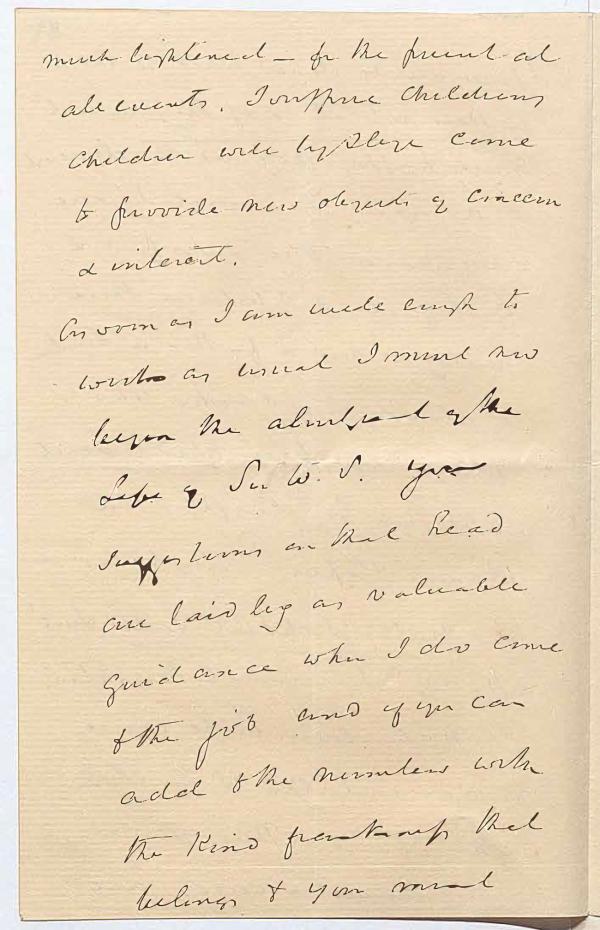 much lightened – for the present at
all events. I suppose Childrens
Children will by & bye come
to provide new objects of concern
& interest.
As soon as I am well enough to
work as usual I must now
begin the abridgement of the
Life of Sir W. S. your
suggestions on that head
are laid by as valuable
guidance when I do come
to the job and if you can
add to the number with
the kind frankness that
belongs to you